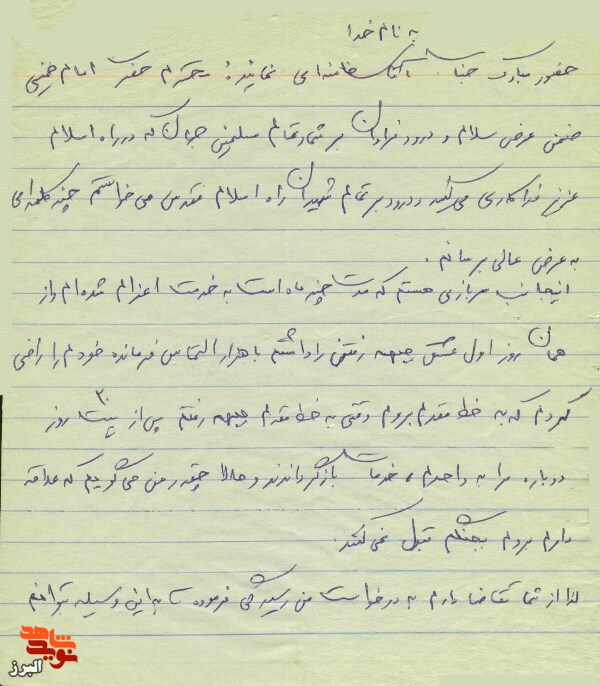 به نام خدا
حضور مبارک جناب آقای خامنه‌ای نماینده محترم حضرت امام خمینی
ضمن عرض سلام و درود فراوان بر شما و تمام مسلمین جهان که در راه اسلام
عزیز فداکاری می‌کنند و درود بر تمام شهیدان راه اسلام مقدس می‌خواستم چند کلمه‌ای
به عرض عالی برسانم.
اینجانب سربازی هستم که مدت چند ماه است به خدمت اعزام شده‌ام و از
همان روز اول عشق جبهه رفتن را داشتم با هزار التماس فرمانده خودم را راضی
کردم که به خط مقدم بروم وقتی به خط مقدم جبهه رفتم پس از ۲۰ روز
دوباره مرا به واحدم، خدمات بازگرداندند و حالا چقدر من می‌گویم که علاقه
دارم بروم بجنگم قبول نمی‌کنند.
لذا از شما تقاضا دارم به درخواست من رسیدگی فرموده تا به این وسیله بتوانم
نوید شاهد
البرز